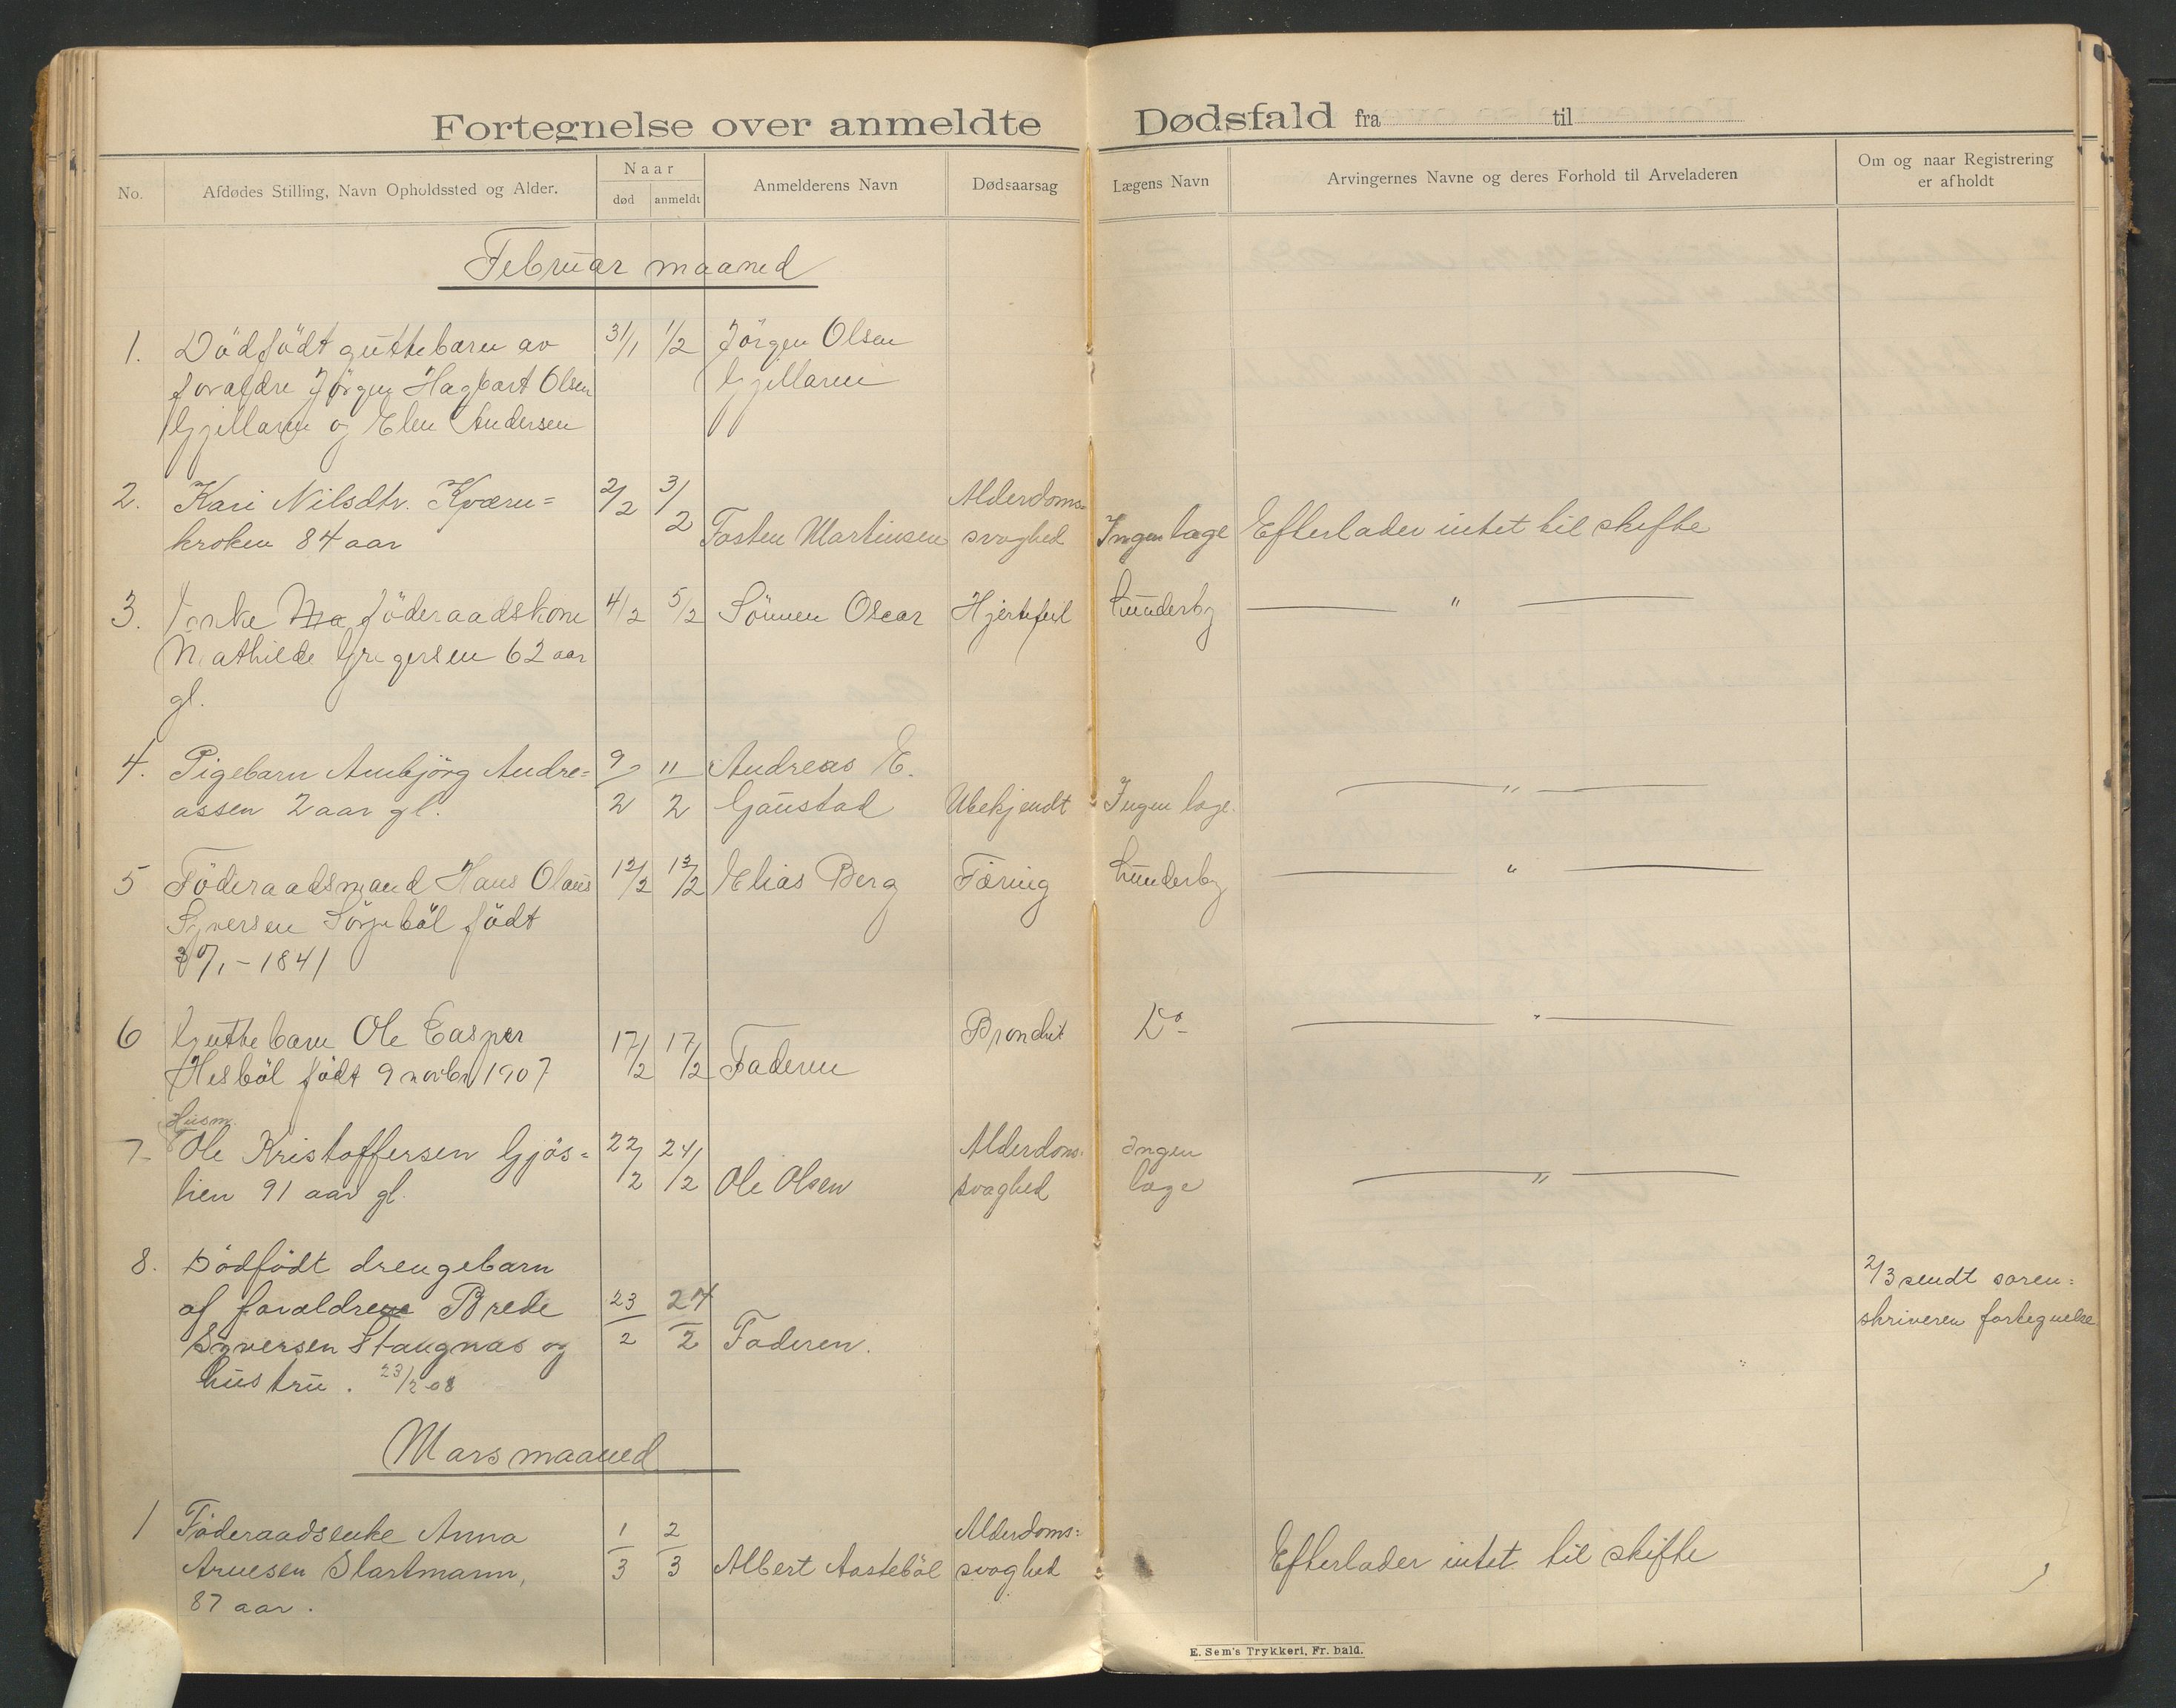 Fortegnelse over anmeldte Dødsfald fra til
No. Afdødes Stilling, Navn Opholdssted og Alder. Naar død anmeldt Anmelderens Navn Dødsaarsag Lægens Navn Arvingernes Navne og deres Forhold til Arveladeren Om og naar Registrering er afholdt
Februar maaned
1. Dödfödt guttebarn av 31/1 1/2 Jörgen Olsen
foraldre Jörgen Hagbart Olsen Gjellarm
Gjellarm og Elen Andersen
2. Kari Nilsdtr. Kværn= 2/2 3/2 Alderdoms=
kroken 84 aar Tosten Martinsen svaghed Ingen læge Efterlader intet til skifte
3. Enke Ma föderaadskone 4/2 5/2 Sönnen Oscar Hjertefeil Lunderby — " —
Mathilde Gregersen 62 aar
gl.
4. Pigebarn Ambjörg Andre= 9/2 11/2 Andreas E.
assen 2 aar gl. Gaustad Ubekjendt Ingen læge. — " —
5 Föderaadsmand Hans Olaus 12/2 13/2 Elias Berg Tæring Lunderby — " —
Syversen Sörgeböl födt
30/1 - 1841
6 Guttebarn Ole Casper 17/2 17/2 Bronchit Do — " —
Hesböl födt 9 novbr 1907 Faderen
Husm.
7 Ole Kristoffersen Gjös= 22/2 24/2 Alderdoms= Ingen
lien 91 aar gl. Ole Olsen svaghed læge — " —
8. Dödfödt drengebarn 2/3 sendt soren=
af foraldrene Brede 23/2 24/2 skriveren fortegnelse
Syversen Stangnæs og Faderen.
hustru. 23/2 08
Mars maaned
1 Föderaadsenke Anna 1/3 2/3 Alderdoms=
Arnesen Slartmann, Albert Aasteböl svaghed Efterlader intet til skifte
87 aar.
E. Sem's Trykkeri, Fr.hald.